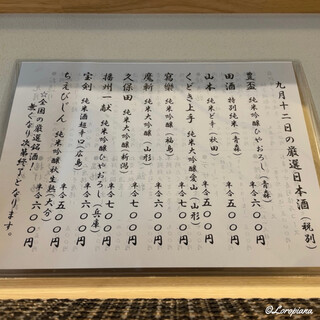 九月十二日の厳選日本酒（税別）
豊盃 純米吟醸ひやおろし（青森） 半合六〇〇円
田酒 特別純米（青森） 半合五〇〇円
山本 純米ど辛（秋田） 半合五〇〇円
くどき上手 純米大吟醸愛山（山形） 半合七〇〇円
寫樂 純米吟醸（福島） 半合六〇〇円
魔斬 純米大吟醸（山形） 半合七〇〇円
久保田 純米大吟醸（新潟） 半合七〇〇円
播州一献 純米吟醸ひやおろし（兵庫） 半合六〇〇円
宝剣 純米酒超辛口（広島） 半合五〇〇円
ちえびじん 純米吟醸秋生熟（大分） 半合六〇〇円
☆全国の厳選銘酒！
無くなり次第終了となります。
©Loropiana